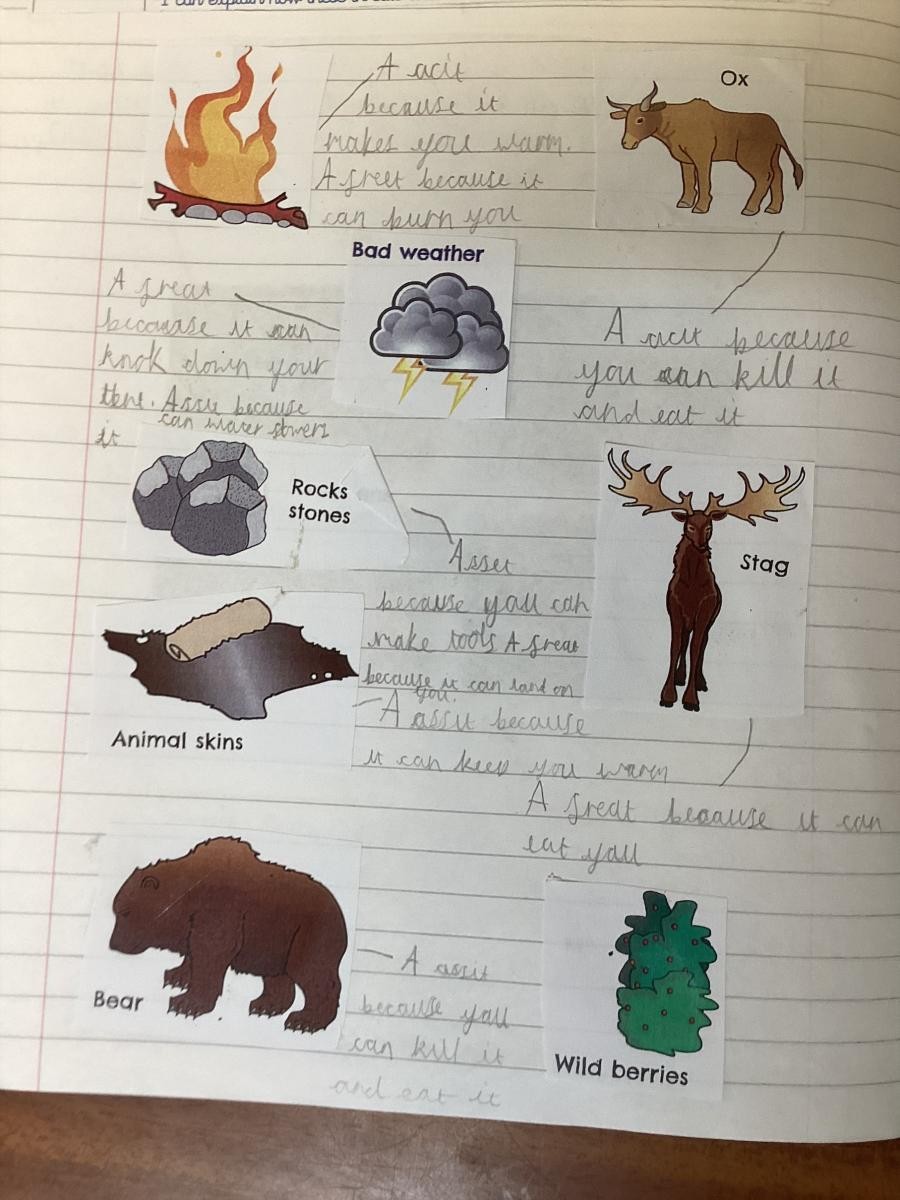 I can explain how these
A acit
because it
makes you warm.
A freet because it
can burn you
Ox
Bad weather
A freat
because it can
knok down your
tent. Assie because
it can water flowers
A acit because
you can kill it
and eat it
Rocks
stones
Asset
because yall can
make tools A freat
because it can land on
you.
Stag
Animal skins
A assit because
it can keep you warm
A freat because it can
eat yall
Bear
A assit
because yall
can kill it
and eat it
Wild berries